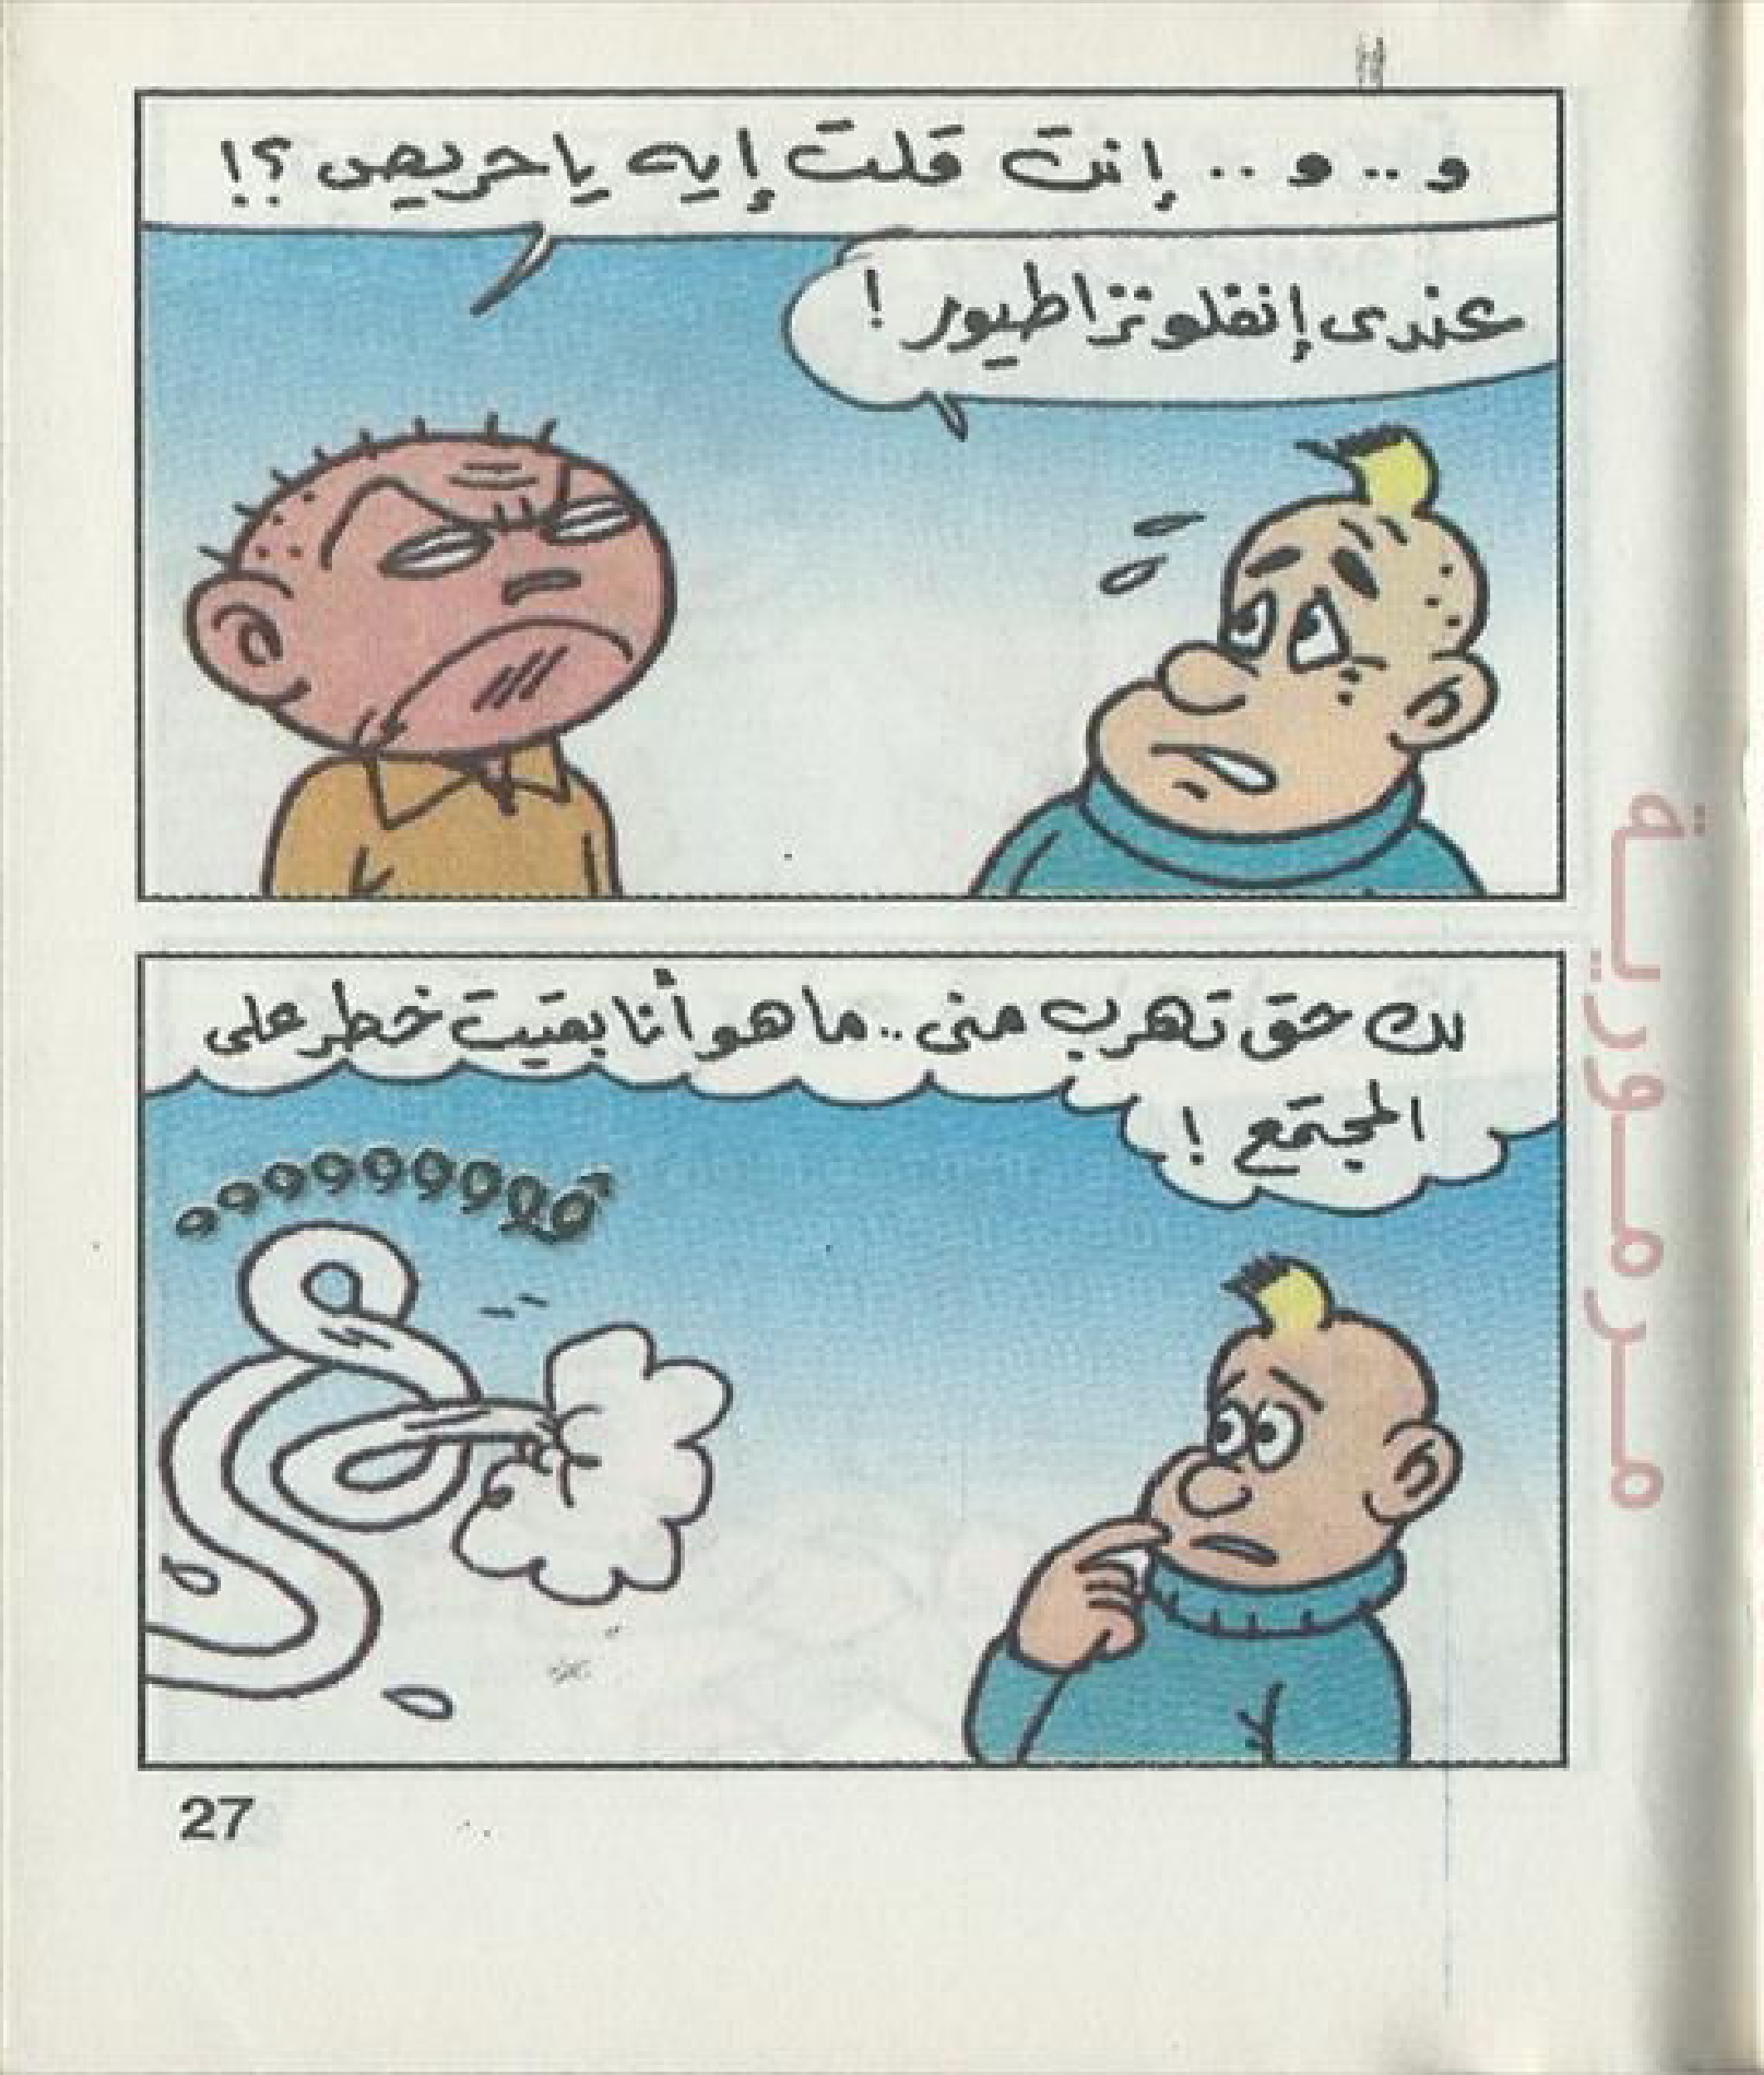 و .. و .. إنت قلت إيه يا حريص ؟!
عندى إنفلونزا طيور !
لك حق تهرب منى .. ما هو أنا بقيت خطر على
المجتمع !
27
مرمورية